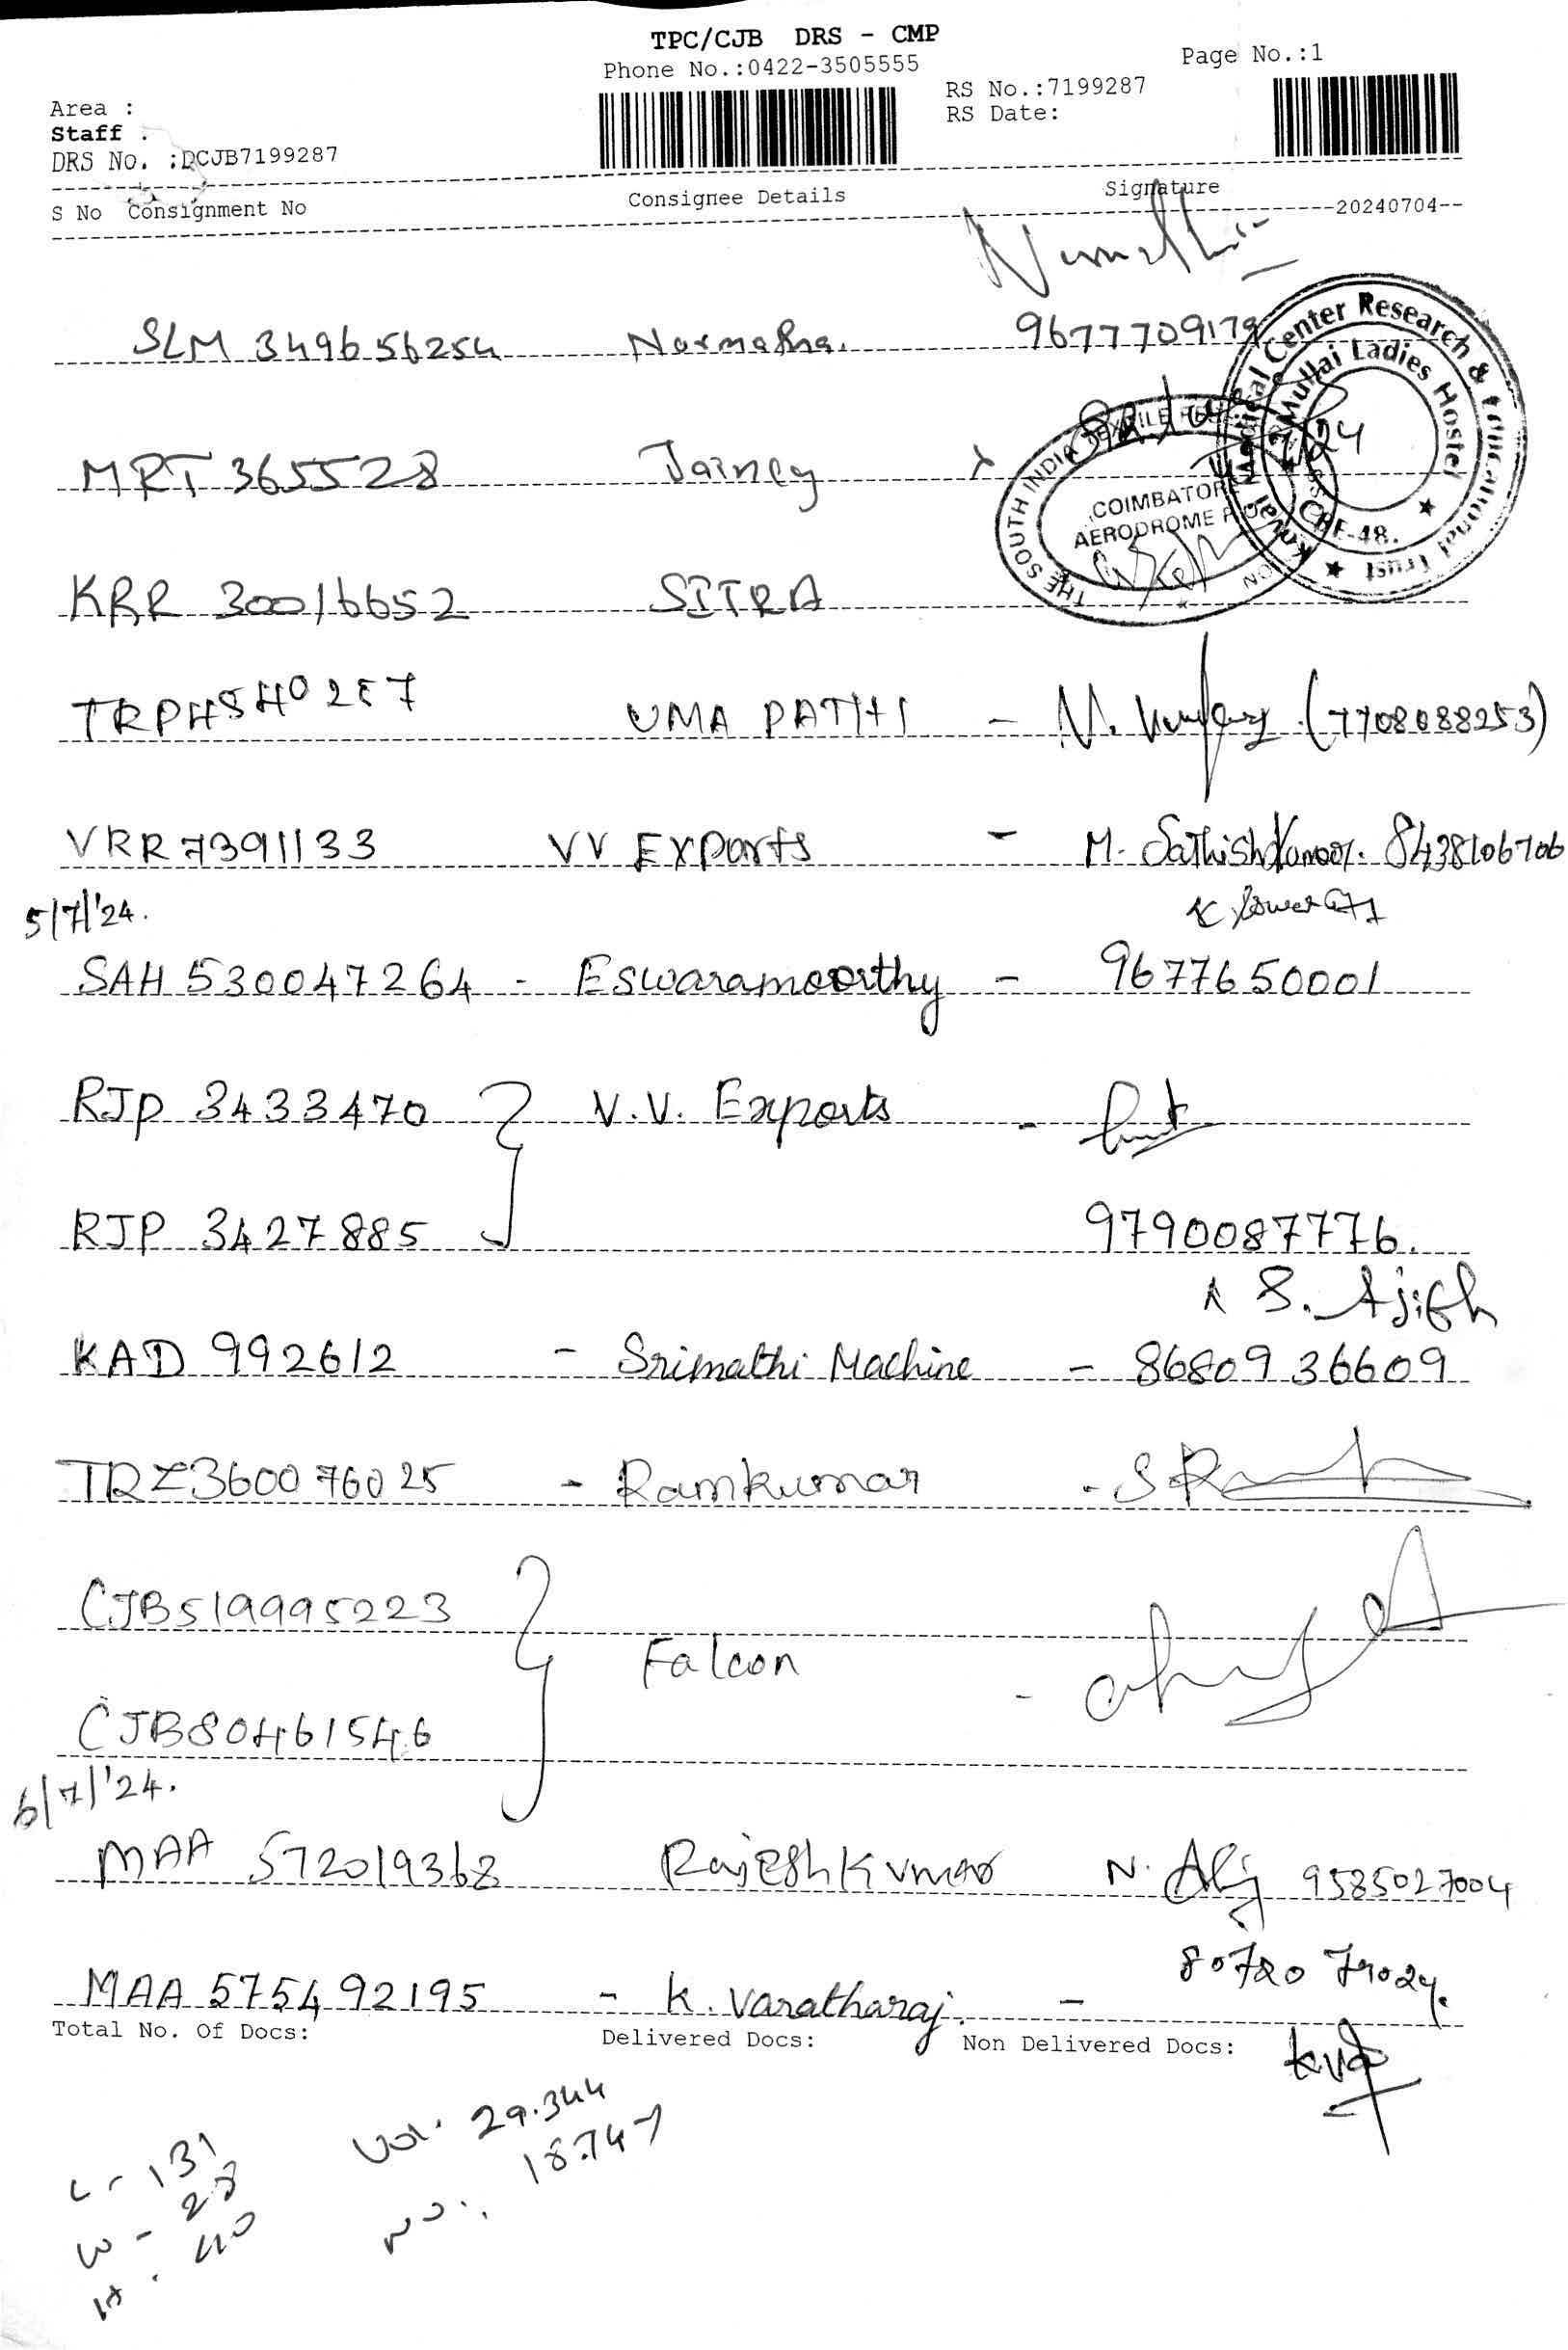 TPC/CJB DRS - CMP
Phone No.:0422-3505555
Page No.:1
Area :
RS No.:7199287
Staff :
RS Date:
DRS No. :DCJB7199287
S No Consignment No Consignee Details Signature
--20240704--
SLM 349656254 Narmatha. 9677709179
MRT 365528 Jainey
KRR 300016652 SITRA
TRPH540257 UMA PATHI - N. (7708088253)
VRR 7391133 VV EXPorts - M. SathishKumar. 8438106706
5/7/'24.
SAH 530047264 - Eswaramoorthy - 9677650001
RJP 3433470 V.V. Exports -
RJP 3427885 9790087776.
S. Ajith
KAD 992612 - Srimathi Machine - 8680936609
TRZ360076025 - Ramkumar -
CJB519995223
Falcon -
CJB80461546
6/7/'24.
MAA 572019368 RajeshKumar N. 9585027004
80720 79024.
MAA 575492195 - K. Varatharaj. -
Total No. Of Docs: Delivered Docs: Non Delivered Docs:
L - 131 Vol. 29.344
W - 28 18.747
H. 40
Kovai Medical Center Research & Educational Trust
Mullai Ladies Hostel
CBE-48.
THE SOUTH INDIA TEXTILE
COIMBATORE
AERODROME P.O